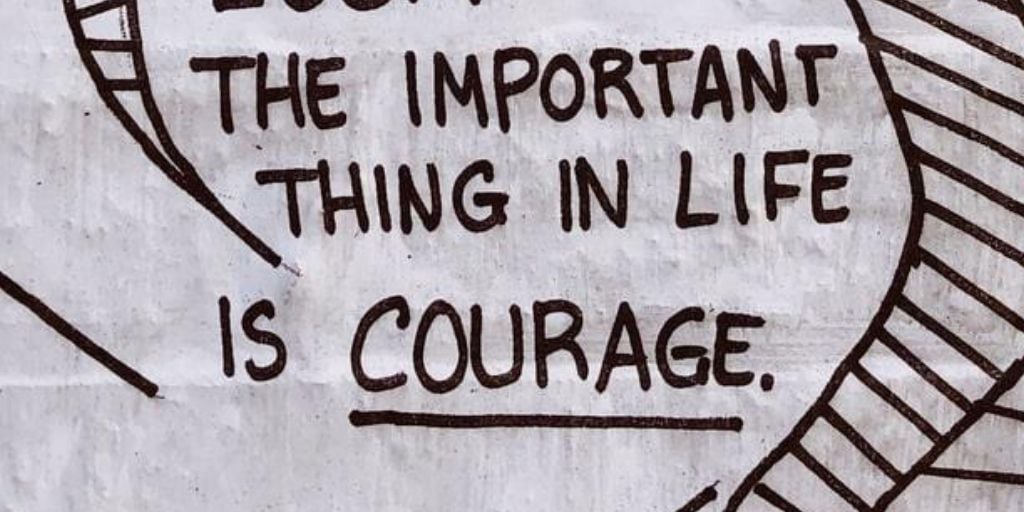 THE IMPORTANT
THING IN LIFE
IS COURAGE.